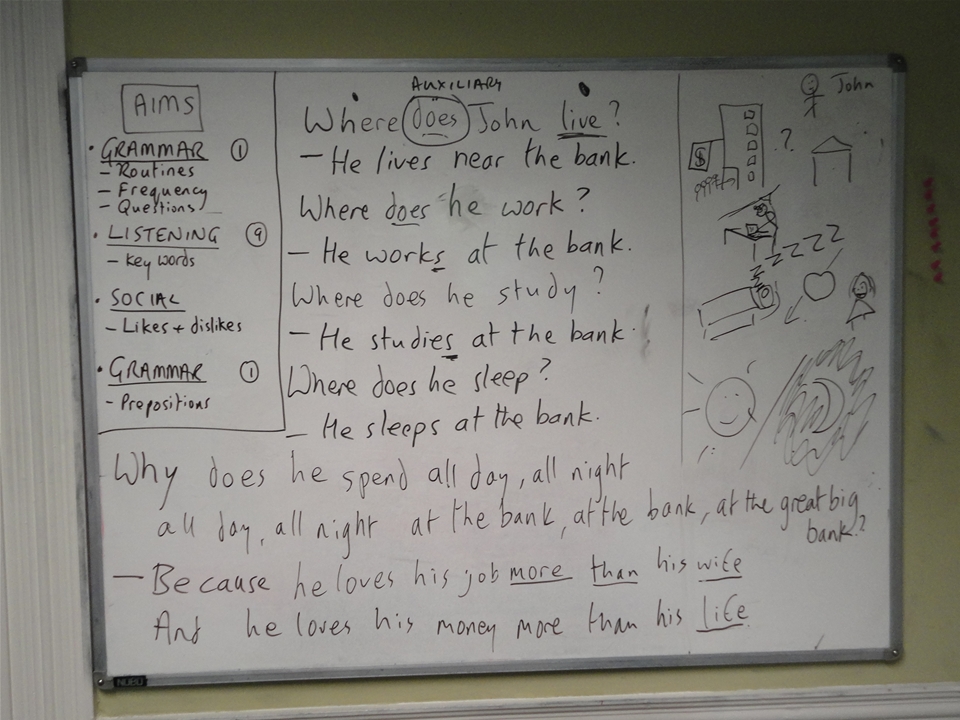 AIMS
• GRAMMAR ①
- Routines
- Frequency
- Questions
• LISTENING ⑨
- Key words
• SOCIAL
- Likes + dislikes
• GRAMMAR ①
- Prepositions
AUXILIARY
Where does John live?
- He lives near the bank.
Where does he work?
- He works at the bank.
Where does he study?
- He studies at the bank.
Where does he sleep?
- He sleeps at the bank.
John
$
?
ZZZZZZZ
Why does he spend all day, all night
all day, all night at the bank, at the bank, at the great big
bank?
- Because he loves his job more than his wife
And he loves his money more than his life
NOBO